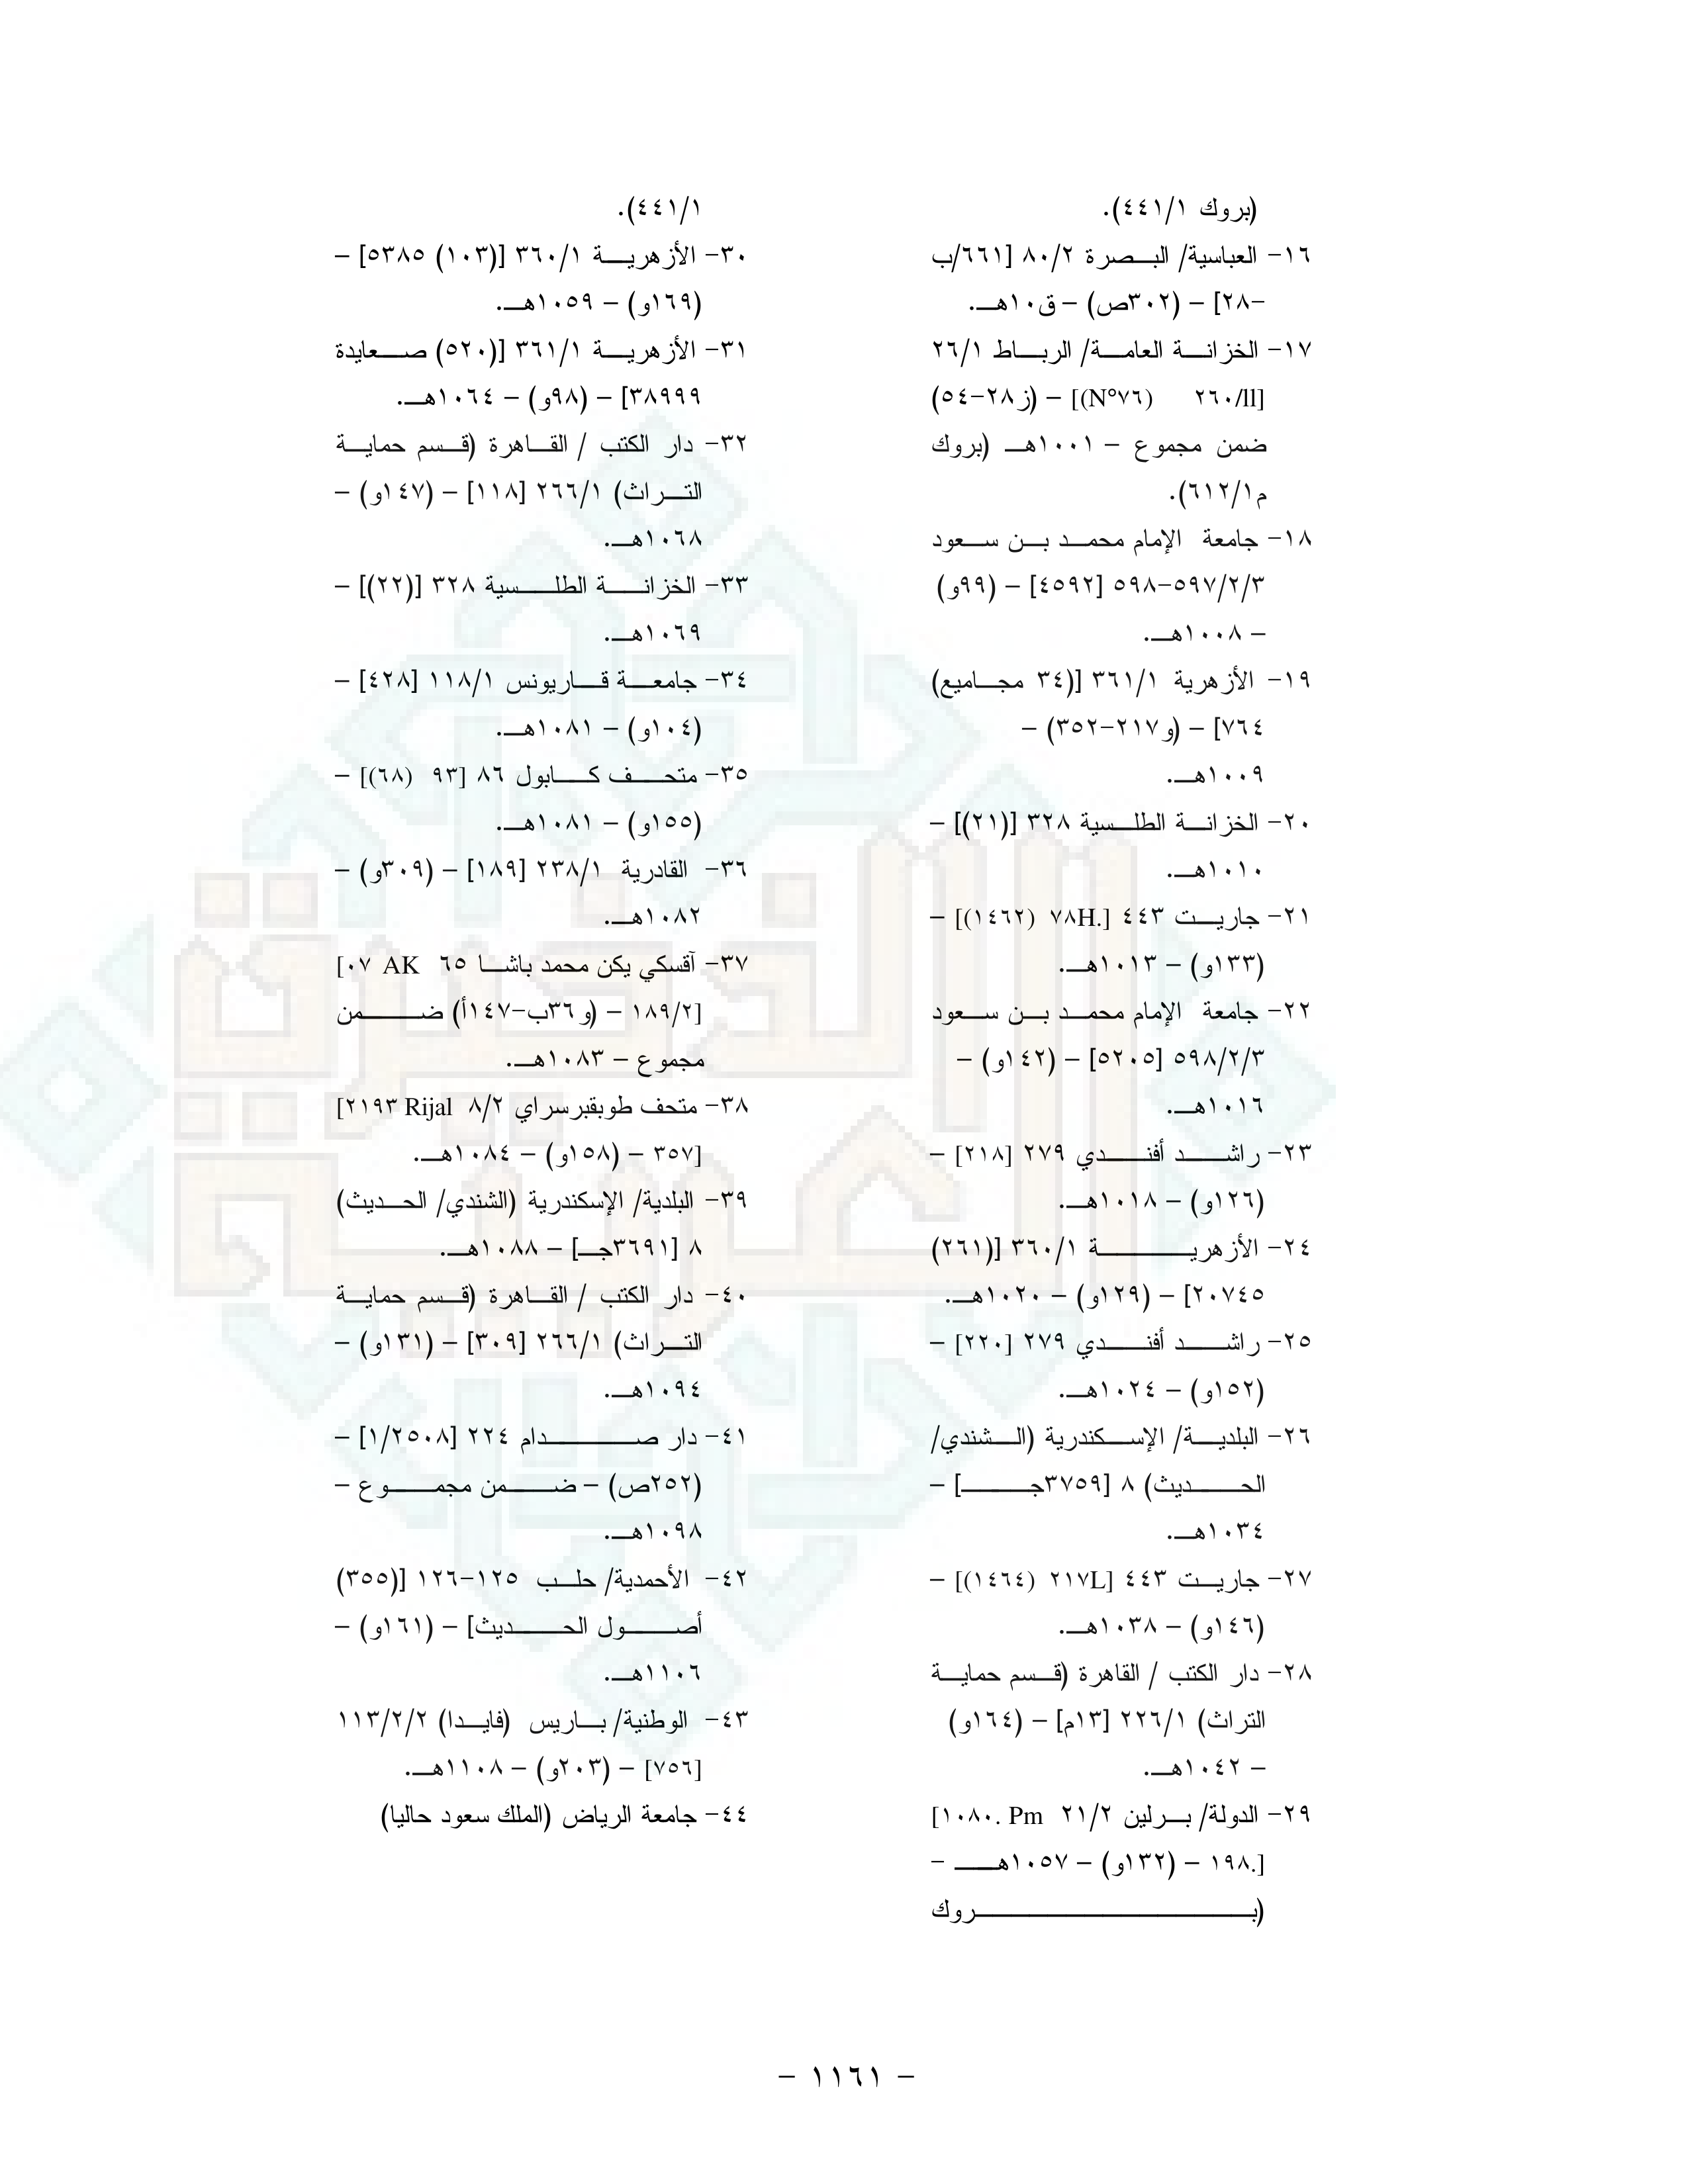 (بروك ٤٤١/١).
١٦- العباسية/ البصرة ٨٠/٢ [٦٦١/ب
-٢٨] – (٣٠٢ص) – ق١٠هـ.
١٧- الخزانة العامة/ الرباط ٢٦/١
[٢٦٠/ll (N°٧٦)] – (ز٢٨-٥٤)
ضمن مجموع – ١٠٠١هـ (بروك
م٦١٢/١).
١٨- جامعة الإمام محمد بن سعود
٥٩٧/٢/٣-٥٩٨ [٤٥٩٢] – (٩٩و)
– ١٠٠٨هـ.
١٩- الأزهرية ٣٦١/١ [(٣٤ مجاميع)
٧٦٤] – (و٢١٧-٣٥٢) –
١٠٠٩هـ.
٢٠- الخزانة الطلسية ٣٢٨ [(٢١)] –
١٠١٠هـ.
٢١- جاريت ٤٤٣ [.٧٨H (١٤٦٢)] –
(١٣٣و) – ١٠١٣هـ.
٢٢- جامعة الإمام محمد بن سعود
٥٩٨/٢/٣ [٥٢٠٥] – (١٤٢و) –
١٠١٦هـ.
٢٣- راشد أفندي ٢٧٩ [٢١٨] –
(١٢٦و) – ١٠١٨هـ.
٢٤- الأزهرية ٣٦٠/١ [(٢٦١)
٢٠٧٤٥] – (١٢٩و) – ١٠٢٠هـ.
٢٥- راشد أفندي ٢٧٩ [٢٢٠] –
(١٥٢و) – ١٠٢٤هـ.
٢٦- البلدية/ الإسكندرية (الشندي/
الحديث) ٨ [٣٧٥٩جـ] –
١٠٣٤هـ.
٢٧- جاريت ٤٤٣ [٢١٧L (١٤٦٤)] –
(١٤٦و) – ١٠٣٨هـ.
٢٨- دار الكتب / القاهرة (قسم حماية
التراث) ٢٢٦/١ [١٣م] – (١٦٤و)
– ١٠٤٢هـ.
٢٩- الدولة/ برلين ٢١/٢ [١٠٨٠. Pm
.١٩٨] – (١٣٢و) – ١٠٥٧هـ –
(بروك
٤٤١/١).
٣٠- الأزهرية ٣٦٠/١ [(١٠٣) ٥٣٨٥] –
(١٦٩و) – ١٠٥٩هـ.
٣١- الأزهرية ٣٦١/١ [(٥٢٠) صعايدة
٣٨٩٩٩] – (٩٨و) – ١٠٦٤هـ.
٣٢- دار الكتب / القاهرة (قسم حماية
التراث) ٢٦٦/١ [١١٨] – (١٤٧و) –
١٠٦٨هـ.
٣٣- الخزانة الطلسية ٣٢٨ [(٢٢)] –
١٠٦٩هـ.
٣٤- جامعة قاريونس ١١٨/١ [٤٢٨] –
(١٠٤و) – ١٠٨١هـ.
٣٥- متحف كابول ٨٦ [٩٣ (٦٨)] –
(١٥٥و) – ١٠٨١هـ.
٣٦- القادرية ٢٣٨/١ [١٨٩] – (٣٠٩و) –
١٠٨٢هـ.
٣٧- آقسكي يكن محمد باشا ٦٥ [٠٧ AK
١٨٩/٢] – (و٣٦ب-١٤٧أ) ضمن
مجموع – ١٠٨٣هـ.
٣٨- متحف طوبقبرسراي ٨/٢ [٢١٩٣ Rijal
٣٥٧] – (١٥٨و) – ١٠٨٤هـ.
٣٩- البلدية/ الإسكندرية (الشندي/ الحديث)
٨ [٣٦٩١جـ] – ١٠٨٨هـ.
٤٠- دار الكتب / القاهرة (قسم حماية
التراث) ٢٦٦/١ [٣٠٩] – (١٣١و) –
١٠٩٤هـ.
٤١- دار صدام ٢٢٤ [١/٢٥٠٨] –
(٢٥٢ص) – ضمن مجموع –
١٠٩٨هـ.
٤٢- الأحمدية/ حلب ١٢٥-١٢٦ [(٣٥٥)
أصول الحديث] – (١٦١و) –
١١٠٦هـ.
٤٣- الوطنية/ باريس (فايدا) ١١٣/٢/٢
[٧٥٦] – (٢٠٣و) – ١١٠٨هـ.
٤٤- جامعة الرياض (الملك سعود حاليا)
– ١١٦١ –